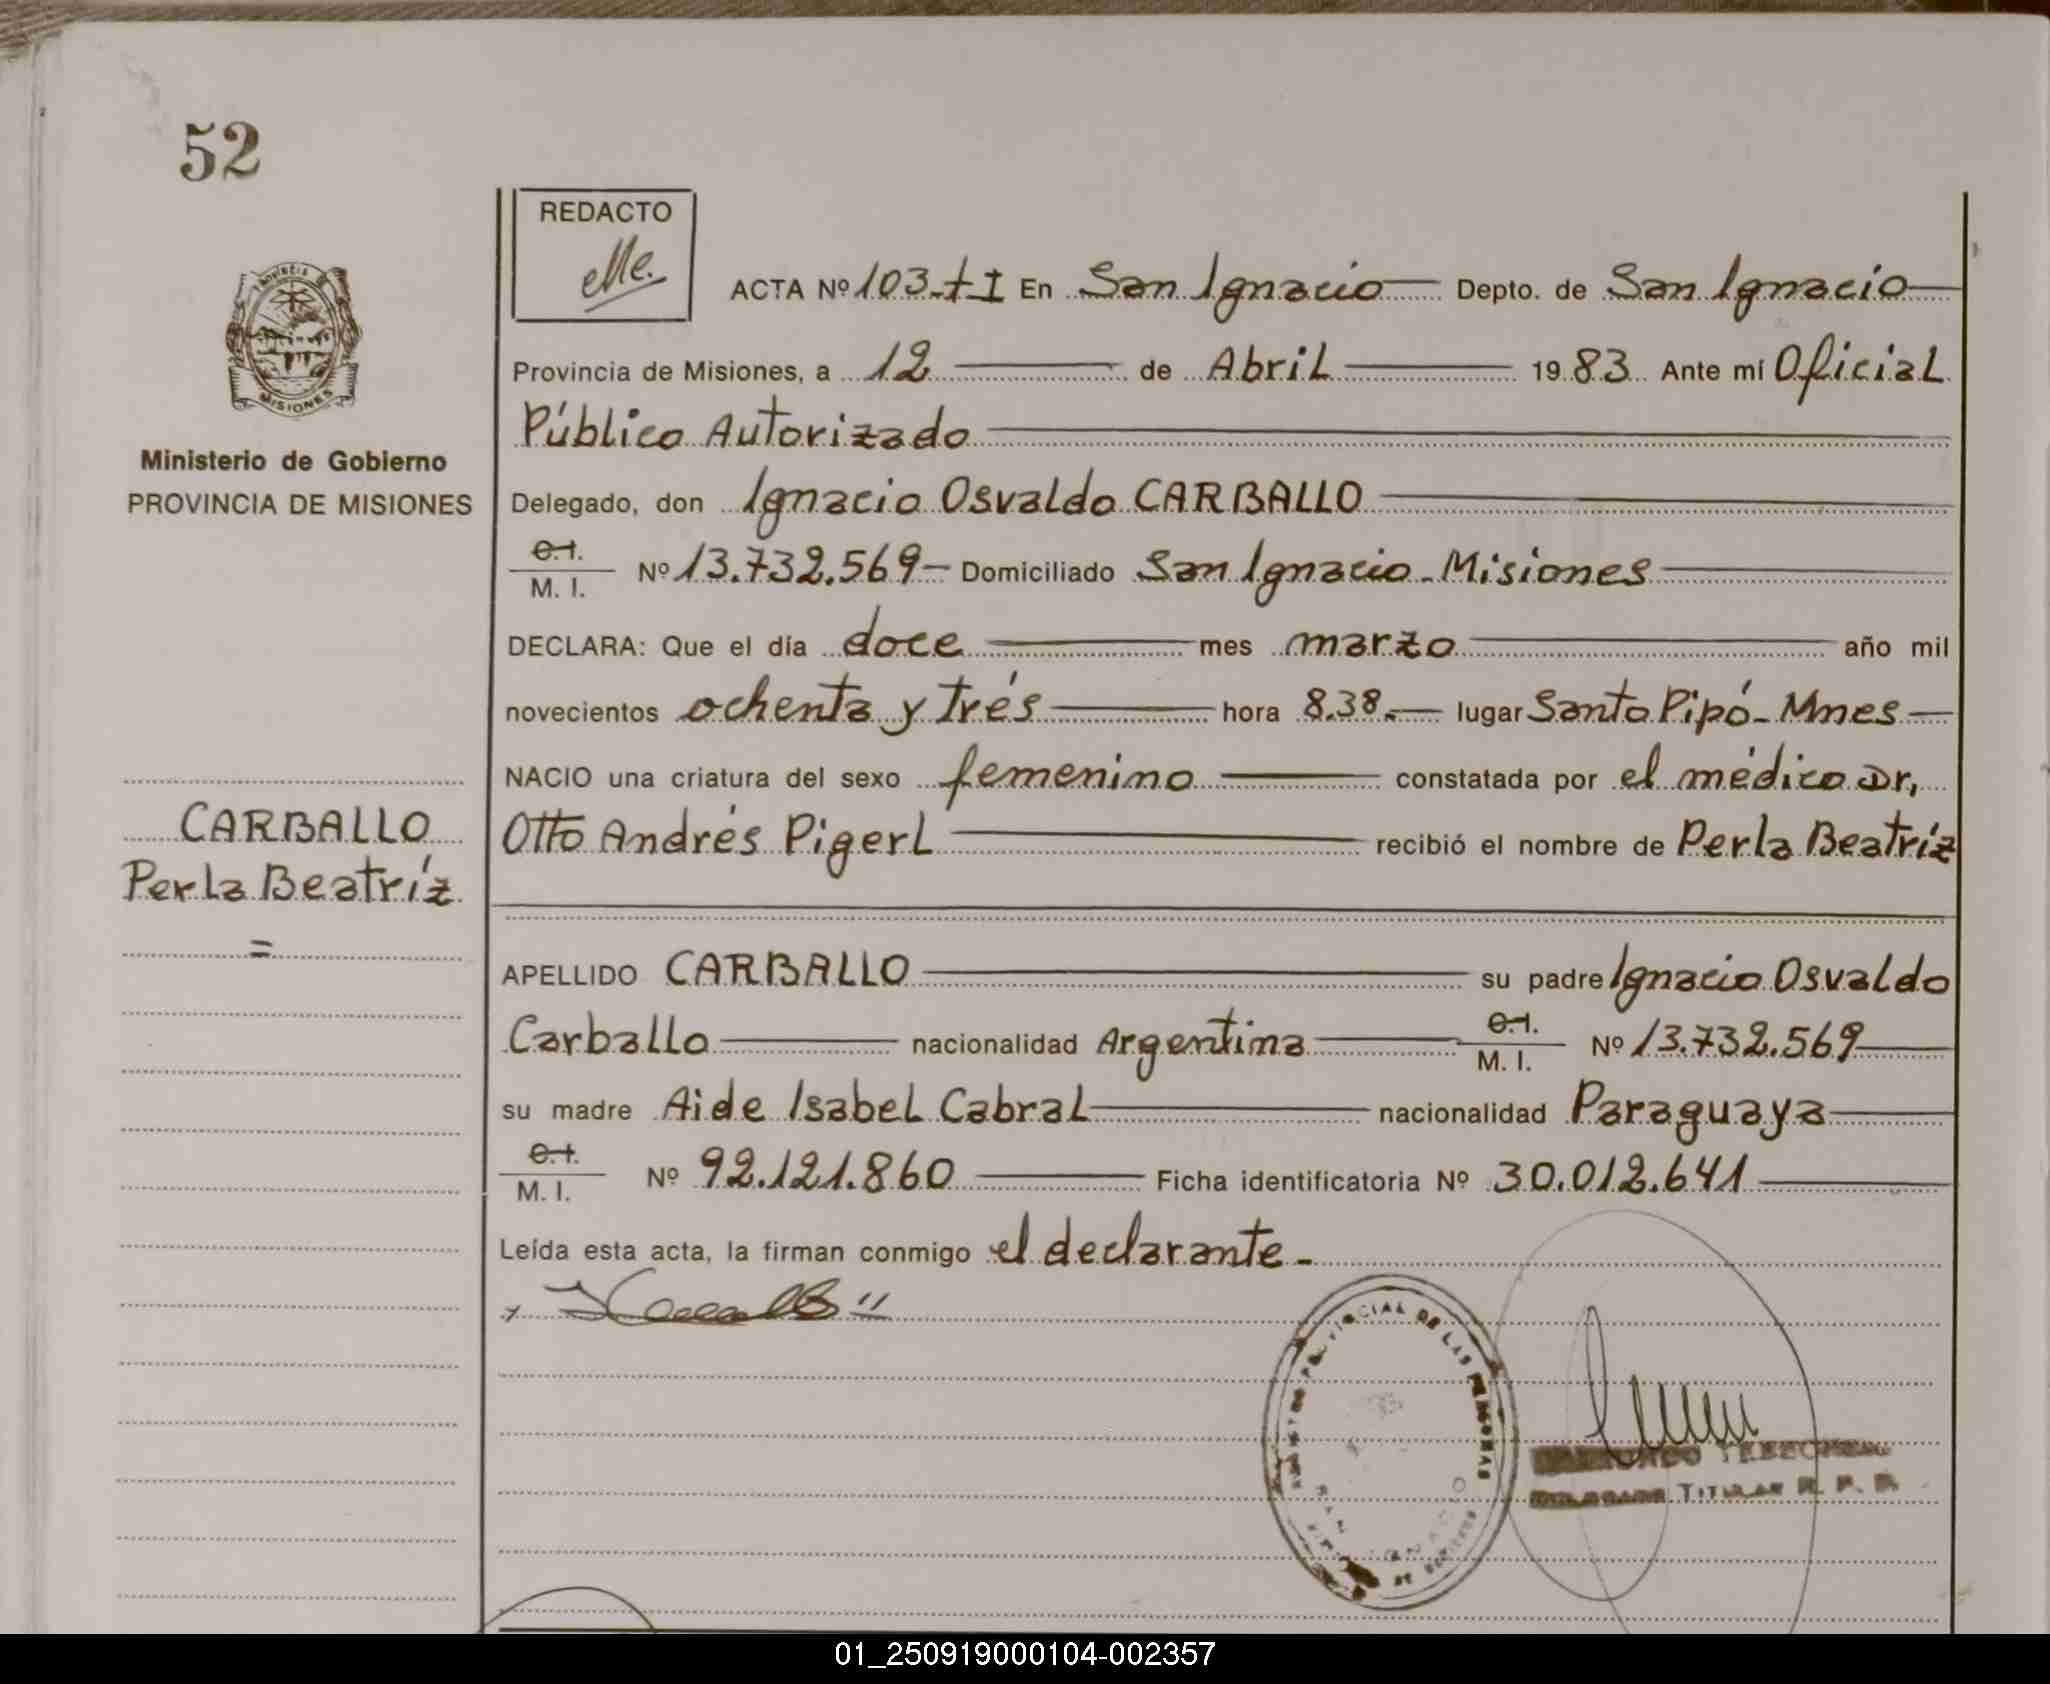 52
REDACTO
PROVINCIA
MISIONES
Ministerio de Gobierno
PROVINCIA DE MISIONES
ACTA Nº 103-tI En San Ignacio Depto. de San Ignacio
Provincia de Misiones, a 12 de Abril 1983 Ante mí Oficial
Público Autorizado
Delegado, don Ignacio Osvaldo CARBALLO
C.I. M. I. Nº 13.732.569 Domiciliado San Ignacio - Misiones
DECLARA: Que el día doce mes marzo año mil
novecientos ochenta y trés hora 8.38.- lugar Santo Pipó - Mnes
NACIO una criatura del sexo femenino constatada por el médico Dr,
Otto Andrés Pigerl recibió el nombre de Perla Beatríz
CARBALLO
Perla Beatríz
=
APELLIDO CARBALLO su padre Ignacio Osvaldo
Carballo nacionalidad Argentina C.I. M. I. Nº 13.732.569
su madre Aide Isabel Cabral nacionalidad Paraguaya
C.I. M. I. Nº 92.121.860 Ficha identificatoria Nº 30.012.641
Leída esta acta, la firman conmigo el declarante -
PROVINCIAL DE LAS PERSONAS
TITULAR R. P. P.
01_250919000104-002357